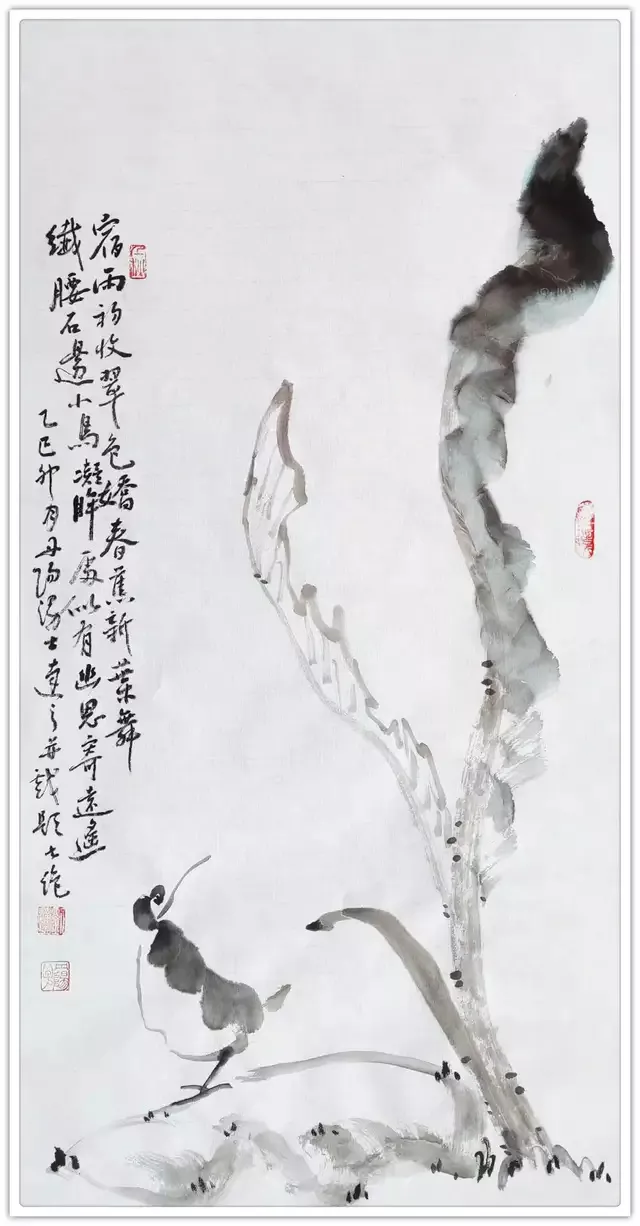 宿雨初收翠色嬌春蕉新葉舞
纖腰石邊小鳥凝眸處似有幽思寄遠遙
乙巳卯月丹陽湯士并戲題七絕